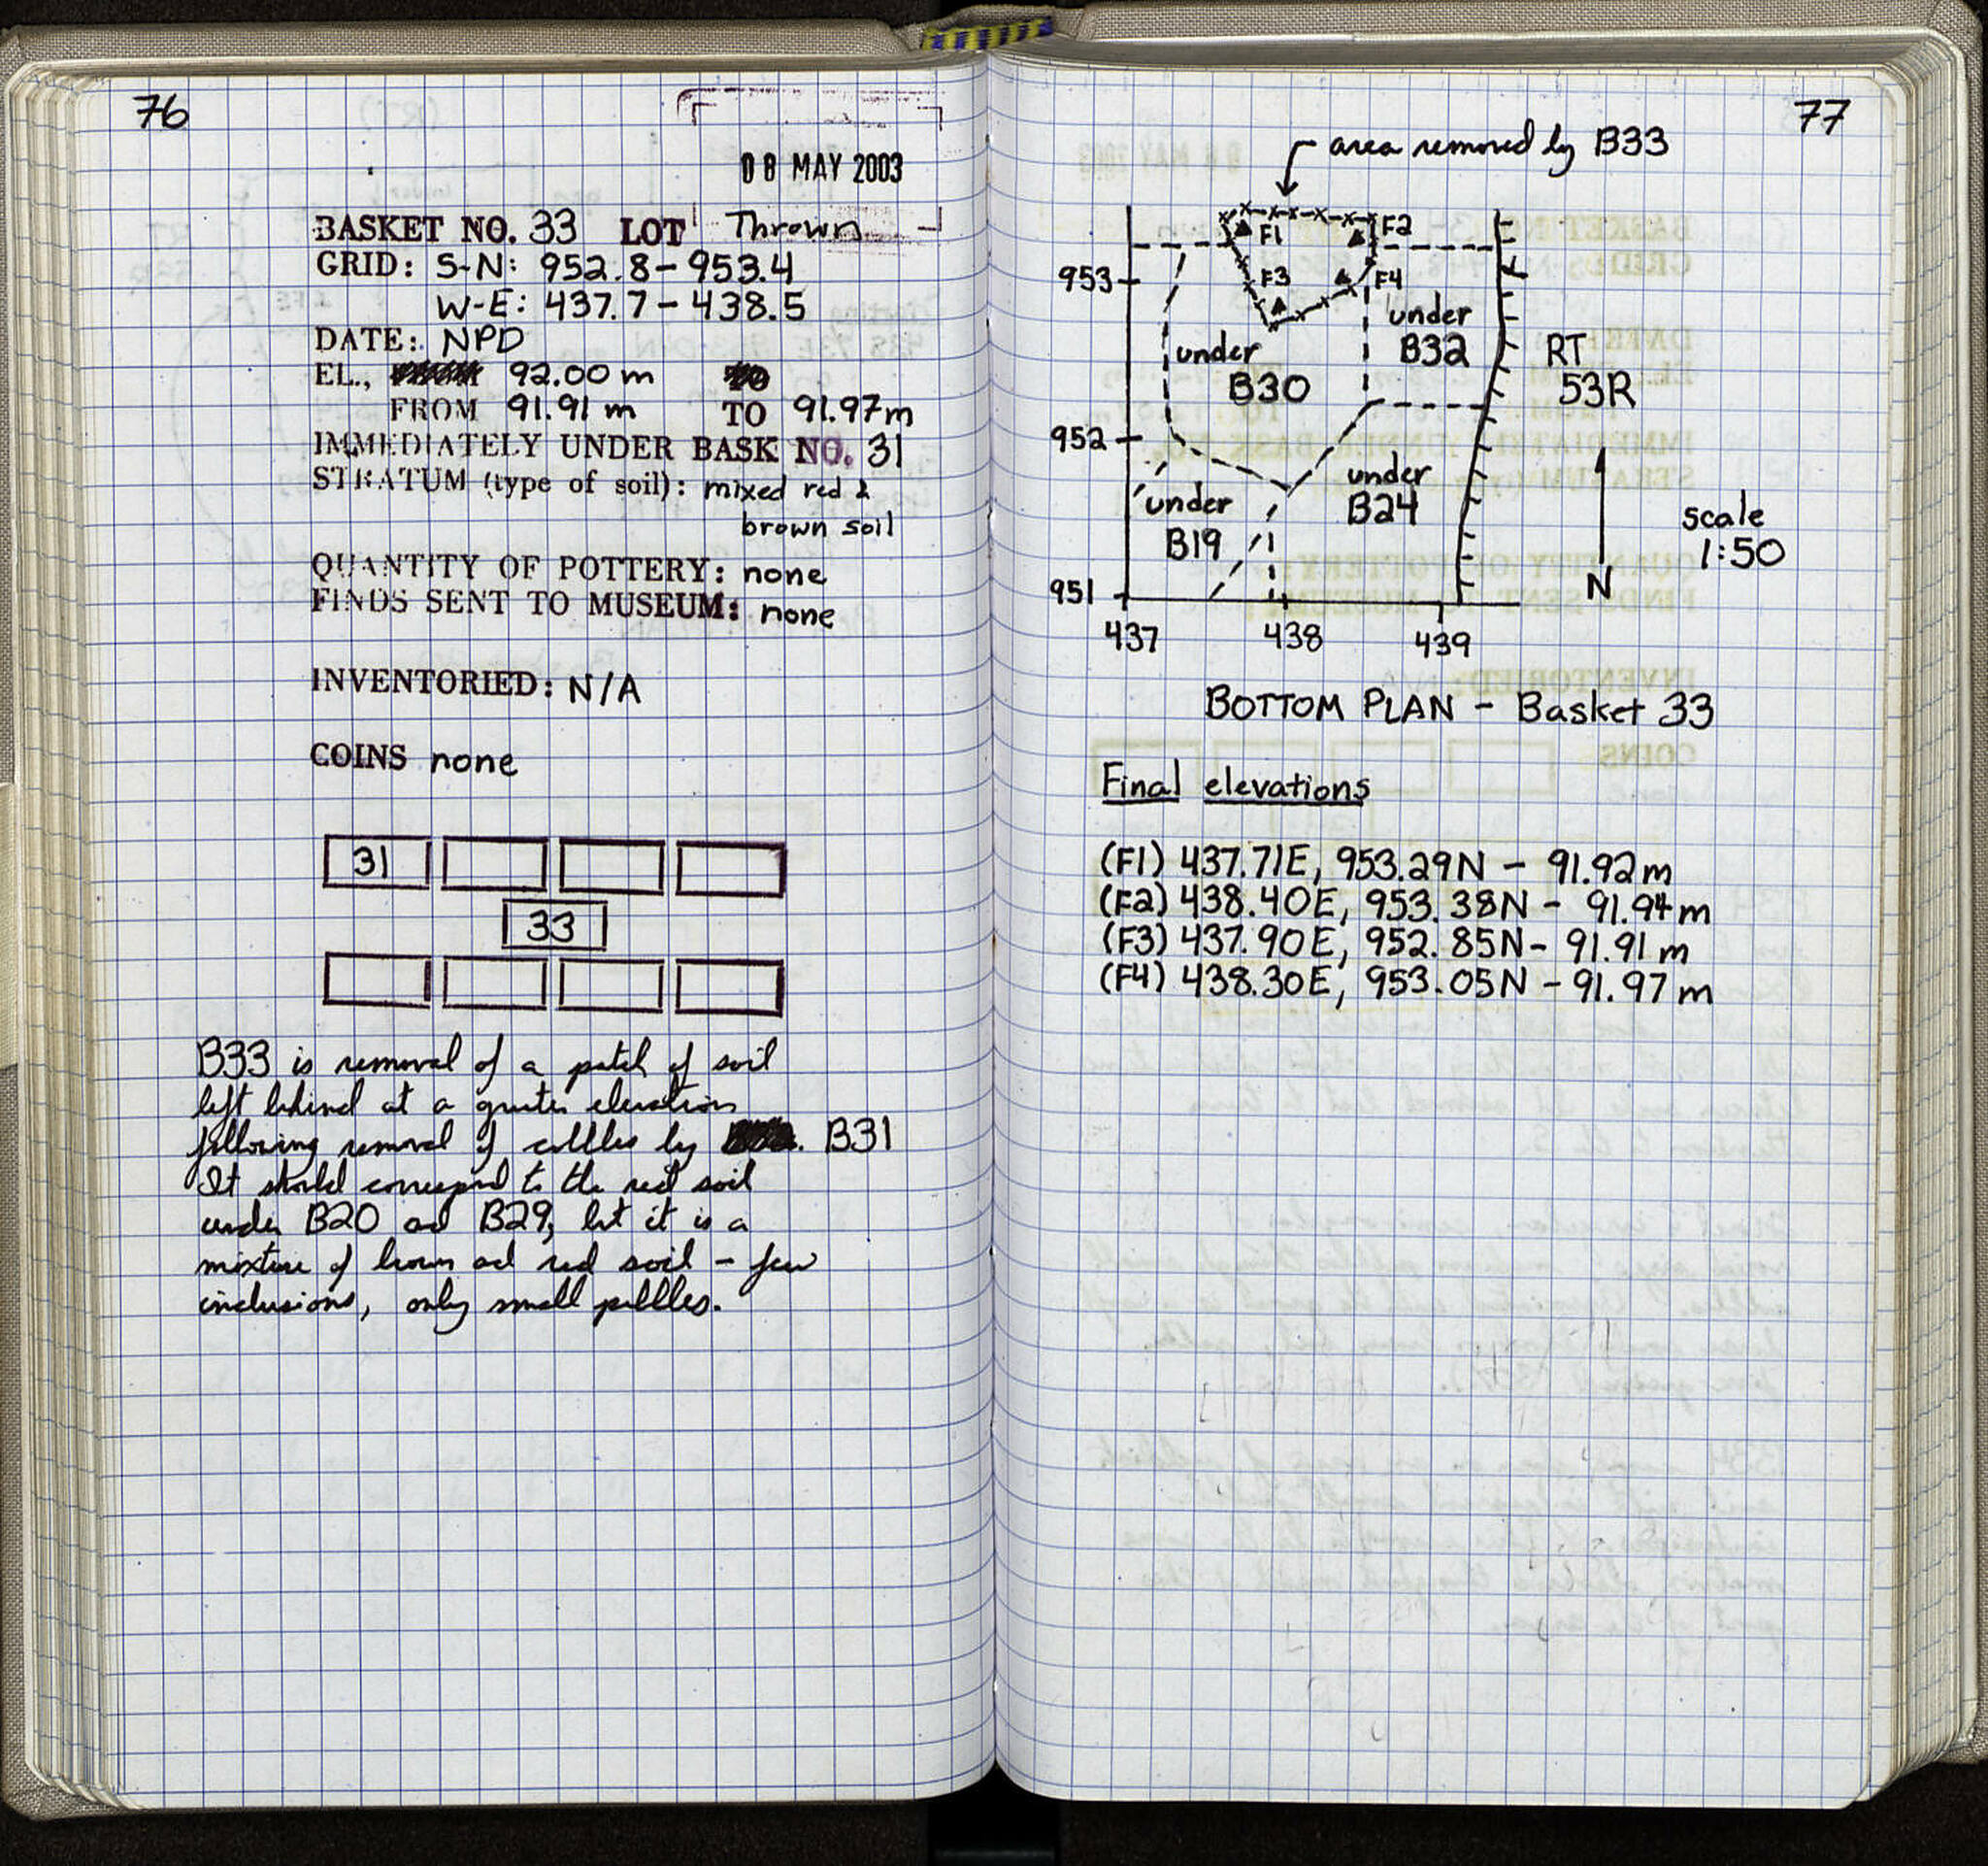 76
08 MAY 2003
BASKET NO. 33 LOT Thrown
GRID: S-N: 952.8-953.4
W-E: 437.7-438.5
DATE: NPD
EL., 92.00 m
FROM 91.91 m TO 91.97m
IMMEDIATELY UNDER BASK NO. 31
STRATUM (type of soil): mixed red &
brown soil
QUANTITY OF POTTERY: none
FINDS SENT TO MUSEUM: none
INVENTORIED: N/A
COINS none
31
33
B33 is removal of a patch of soil
left behind at a greater elevation
following removal of cobbles by B31
It should correspond to the red soil
under B20 and B29, but it is a
mixture of brown and red soil - few
inclusions, only small pebbles.
77
area removed by B33
F1 F2
953 F3 F4
under
B32
under
B30
RT
53R
952
under
B24
under
B19
scale
1:50
951
N
437 438 439
BOTTOM PLAN - Basket 33
Final elevations
(F1) 437.71E, 953.29N - 91.92m
(F2) 438.40E, 953.38N - 91.94m
(F3) 437.90E, 952.85N - 91.91m
(F4) 438.30E, 953.05N - 91.97m